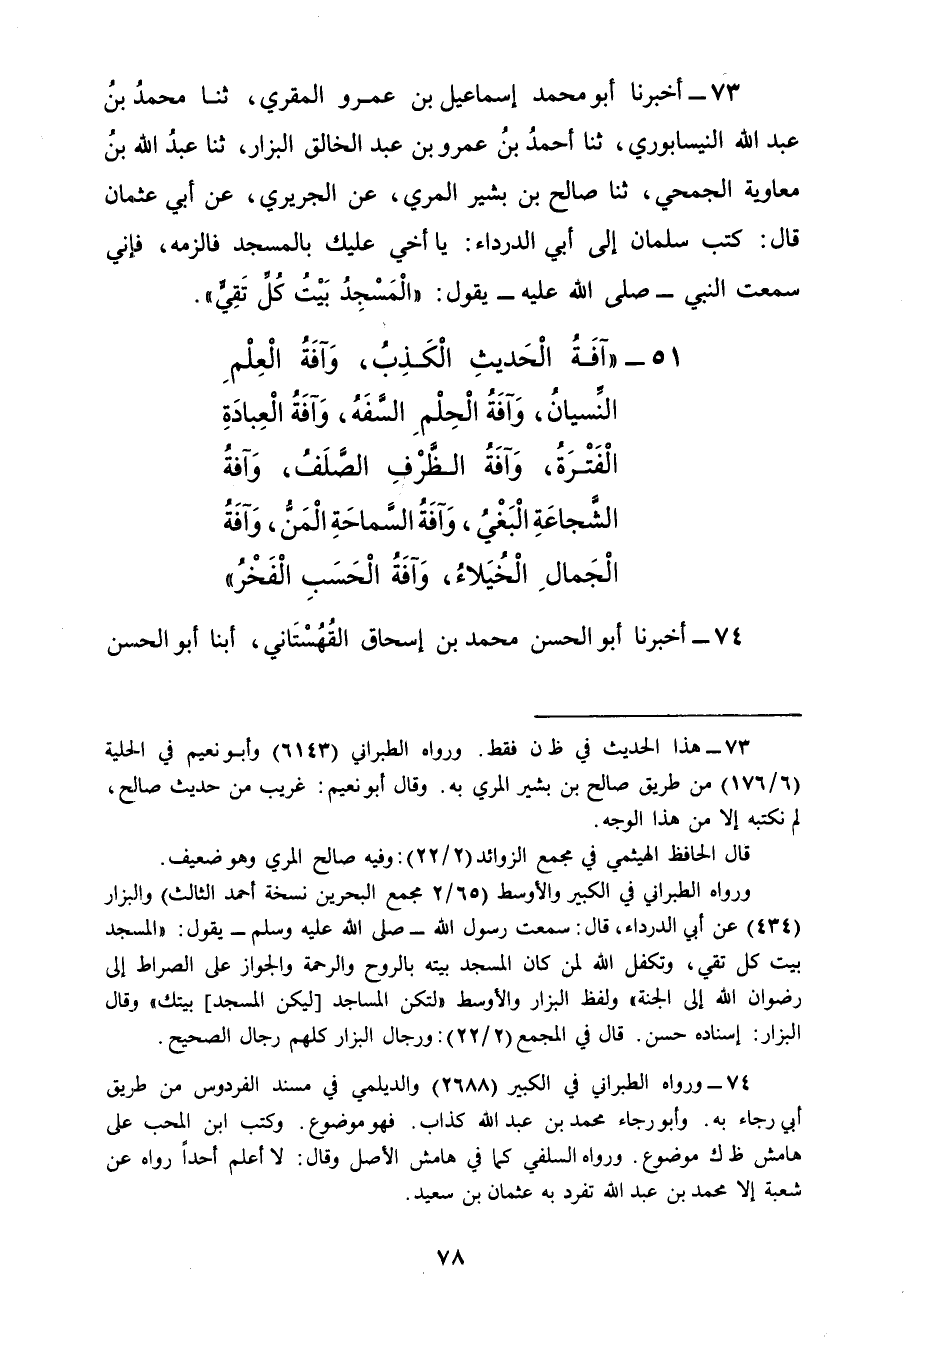 ٧٣ ــ أخبرنا أبو محمد إسماعيل بن عمرو المقري، ثنا محمدُ بنُ
عبد الله النيسابوري، ثنا أحمدُ بنُ عمرو بن عبد الخالق البزار، ثنا عبدُ الله بنُ
معاوية الجمحي، ثنا صالح بن بشير المري، عن الجريري، عن أبي عثمان
قال: كتب سلمان إلى أبي الدرداء: يا أخي عليك بالمسجد فالزمه، فإني
سمعت النبي ــ صلى الله عليه ــ يقول: «الْمَسْجِدُ بَيْتُ كُلِّ تَقِيٍّ».
٥١ ــ «آفَةُ الْحَديثِ الْكَذِبُ، وَآفَةُ الْعِلْمِ
النِّسيانُ، وَآفَةُ الْحِلْمِ السَّفَهُ، وَآفَةُ الْعِبادَةِ
الْفَتْرَةُ، وَآفَةُ الظَّرْفِ الصَّلَفُ، وَآفةُ
الشَّجاعَةِ الْبَغْيُ، وَآفَةُ السَّماحَةِ الْمَنُّ، وَآفَةُ
الْجَمالِ الْخُيَلاءُ، وَآفَةُ الْحَسَبِ الْفَخْرُ»
٧٤ ــ أخبرنا أبو الحسن محمد بن إسحاق القُهُسْتَاني، أبنا أبو الحسن
٧٣ ــ هذا الحديث في ظ ن فقط. ورواه الطبراني (٦١٤٣) وأبو نعيم في الحلية
(١٧٦/٦) من طريق صالح بن بشير المري به. وقال أبو نعيم: غريب من حديث صالح،
لم نكتبه إلا من هذا الوجه.
قال الحافظ الهيثمي في مجمع الزوائد (٢٢/٢): وفيه صالح المري وهو ضعيف.
ورواه الطبراني في الكبير والأوسط (٢/٦٥ مجمع البحرين نسخة أحمد الثالث) والبزار
(٤٣٤) عن أبي الدرداء، قال: سمعت رسول الله ــ صلى الله عليه وسلم ــ يقول: «المسجد
بيت كل تقي، وتكفل الله لمن كان المسجد بيته بالروح والرحمة والجواز على الصراط إلى
رضوان الله إلى الجنة» ولفظ البزار والأوسط «لتكن المساجد [ليكن المسجد] بيتك» وقال
البزار: إسناده حسن. قال في المجمع (٢٢/٢): ورجال البزار كلهم رجال الصحيح.
٧٤ ــ ورواه الطبراني في الكبير (٢٦٨٨) والديلمي في مسند الفردوس من طريق
أبي رجاء به. وأبو رجاء محمد بن عبد الله كذاب. فهو موضوع. وكتب ابن المحب على
هامش ظ ك موضوع. ورواه السلفي كما في هامش الأصل وقال: لا أعلم أحداً رواه عن
شعبة إلا محمد بن عبد الله تفرد به عثمان بن سعيد.
٧٨